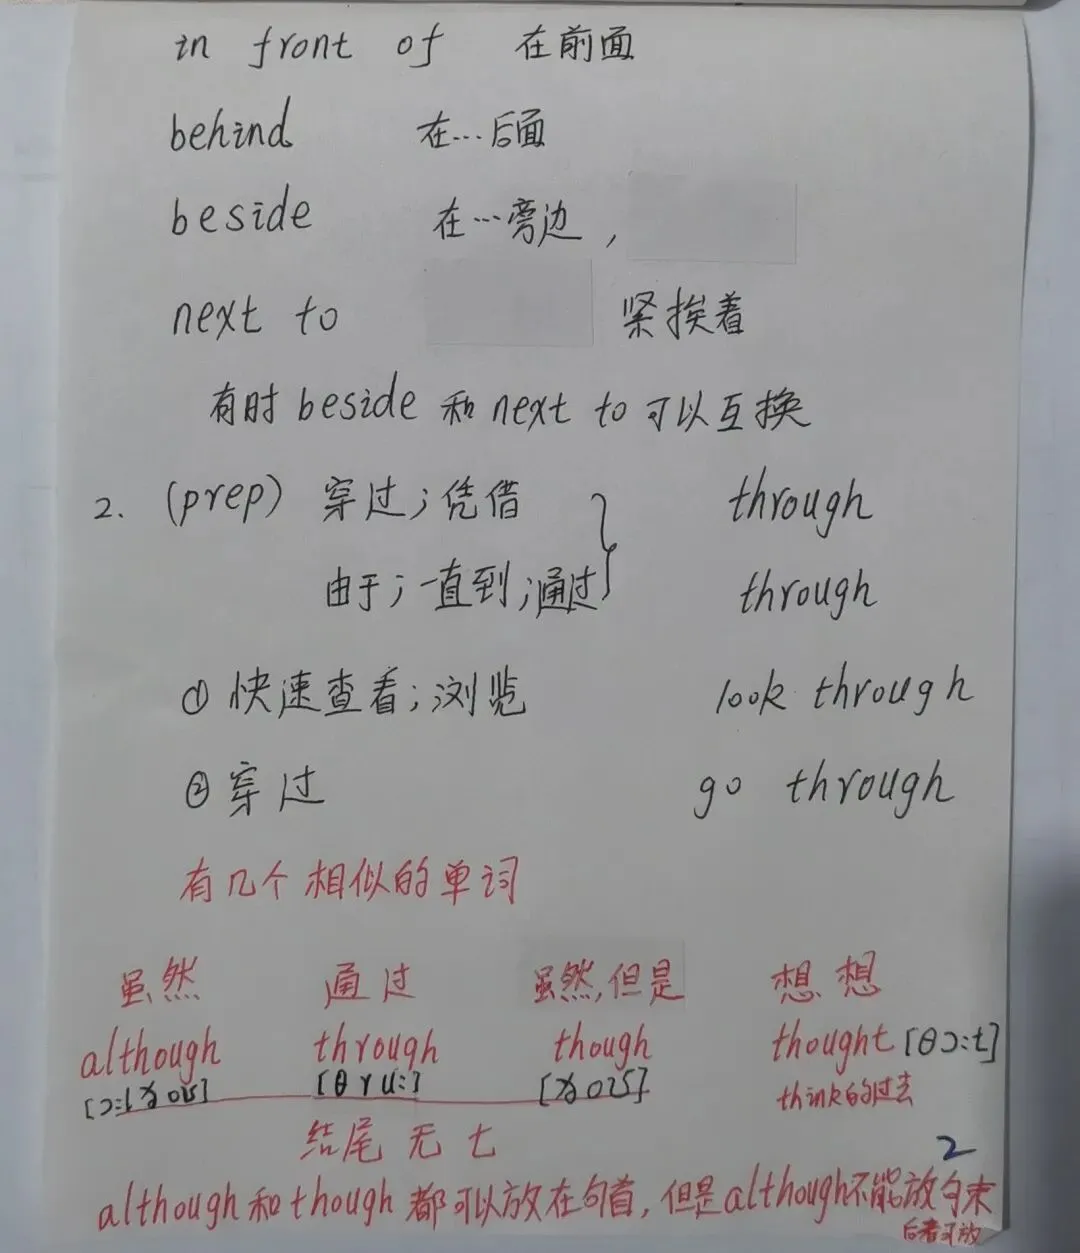 in front of 在前面
behind 在…后面
beside 在…旁边,
next to 紧挨着
有时beside和next to可以互换
2. (prep) 穿过;凭借 through
由于;一直到;通过 through
① 快速查看;浏览 look through
② 穿过 go through
有几个相似的单词
虽然 通过 虽然,但是 想想
although through though thought [θɔ:t]
[ɔ:lˈðəʊ] [θru:] [ðəʊ] think的过去
结尾无t
2
although和though都可以放在句首,但是although不能放句末
后者可放